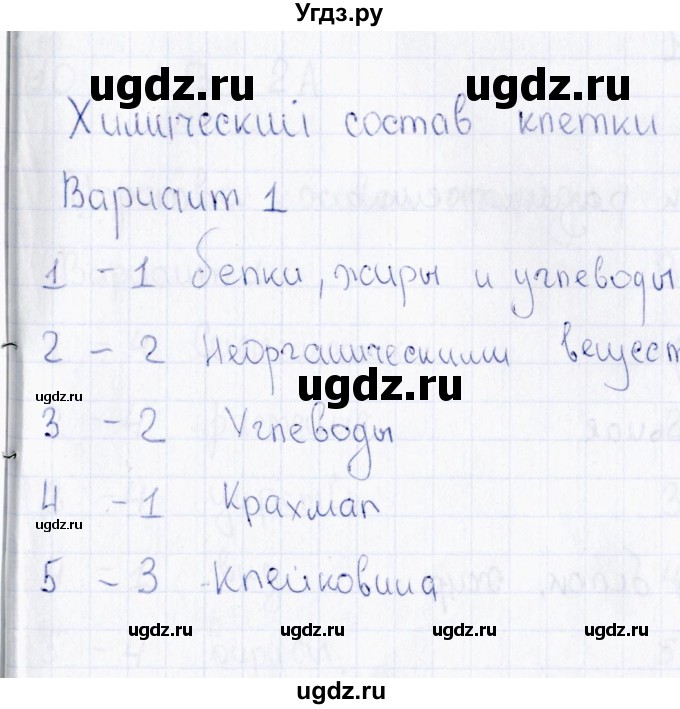 Угдз.ру
ugdz.ru ugdz.ru
Химический состав клетки
Вариант 1
1 - 1 белки, жиры и углеводы
2 - 2 Неорганическими вещест
ugdz.ru
ugdz.ru
3 - 2 Углеводы
4 - 1 Крахмал
ugdz.ru
5 - 3 Клейковина
ugdz.ru ugdz.ru ugdz.ru ugdz.ru
ugdz.ru